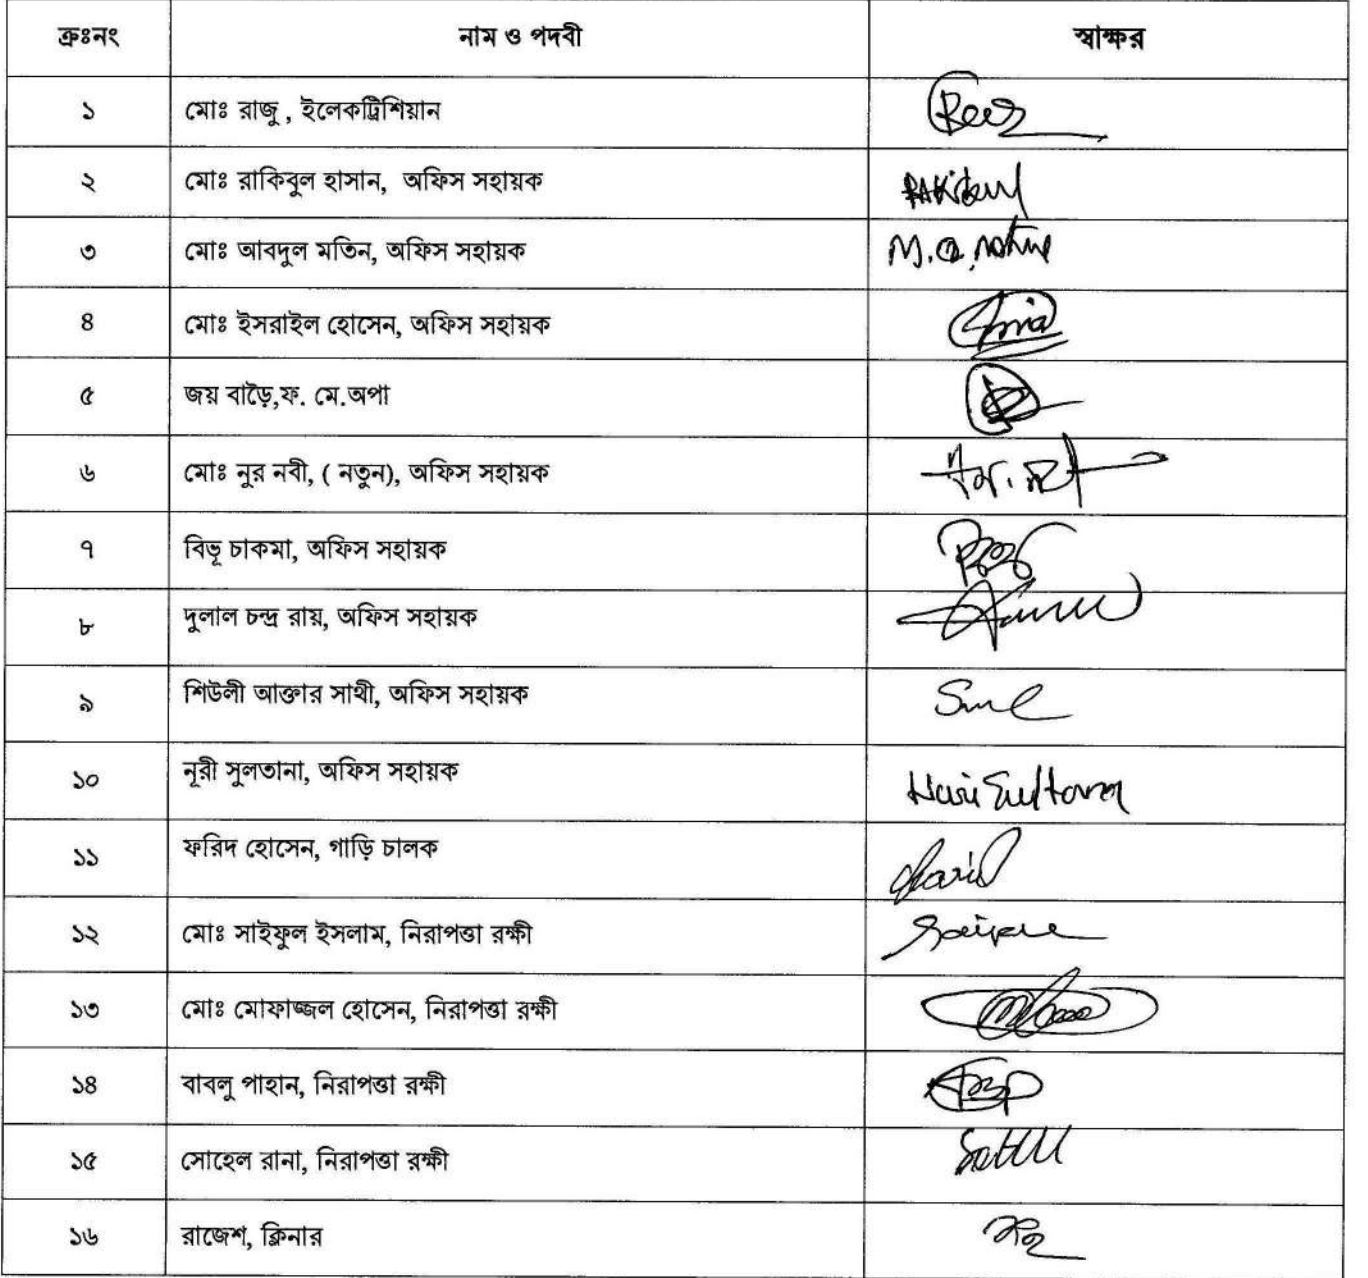 ক্রঃনং নাম ও পদবী স্বাক্ষর
১ মোঃ রাজু , ইলেকট্রিশিয়ান
২ মোঃ রাকিবুল হাসান, অফিস সহায়ক
৩ মোঃ আবদুল মতিন, অফিস সহায়ক
৪ মোঃ ইসরাইল হোসেন, অফিস সহায়ক
৫ জয় বাড়ৈ,ফ. মে.অপা
৬ মোঃ নুর নবী, ( নতুন), অফিস সহায়ক
৭ বিভূ চাকমা, অফিস সহায়ক
৮ দুলাল চন্দ্র রায়, অফিস সহায়ক
৯ শিউলী আক্তার সাথী, অফিস সহায়ক
১০ নূরী সুলতানা, অফিস সহায়ক
১১ ফরিদ হোসেন, গাড়ি চালক
১২ মোঃ সাইফুল ইসলাম, নিরাপত্তা রক্ষী
১৩ মোঃ মোফাজ্জল হোসেন, নিরাপত্তা রক্ষী
১৪ বাবলু পাহান, নিরাপত্তা রক্ষী
১৫ সোহেল রানা, নিরাপত্তা রক্ষী
১৬ রাজেশ, ক্লিনার